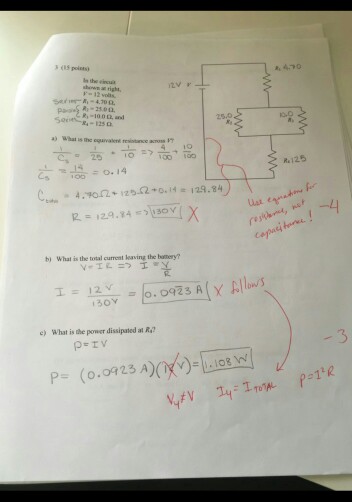 3 (15 points)
In the circuit
shown at right,
V = 12 volts,
series R₁ = 4.70 Ω,
R₂ = 25.0 Ω,
R₃ = 10.0 Ω, and
series R₄ = 125 Ω.
12V
R₁ 4.70
25.0
R₂
10.0
R₃
R₄ 125
a) What is the equivalent resistance across V?
1/C₃ = 1/25 + 1/10 => 4/100 + 10/100
1/C₃ = 14/100 = 0.14
= 4.70Ω + 125Ω + 0.14 = 129.84
R = 129.84 => 130V X
Use equations for
resistance, not
capacitance! -4
b) What is the total current leaving the battery?
V = IR => I = V/R
I = 12V/130V = 0.0923 A X follows
c) What is the power dissipated at R₄?
P = IV
-3
P = (0.0923 A)(12V) = 1.108 W
V₄ ≠ V I₄ = I TOTAL P = I²R